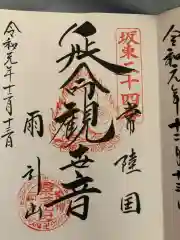 坂東二十四
常陸国
延命観世音
雨引山
令和元年十二月十三日
令和元年十二月十三日